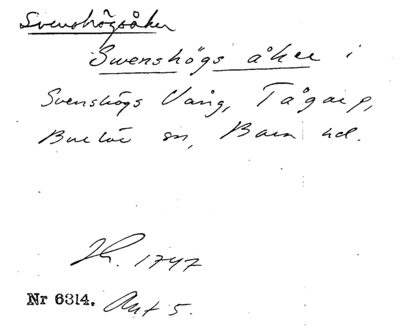 Svenshögsåker
Swenshögs åker i
Svenshögs Vång, Tågarp,
Burlöv sn, Bara hd.
1747
Nr 6314. Akt 5.